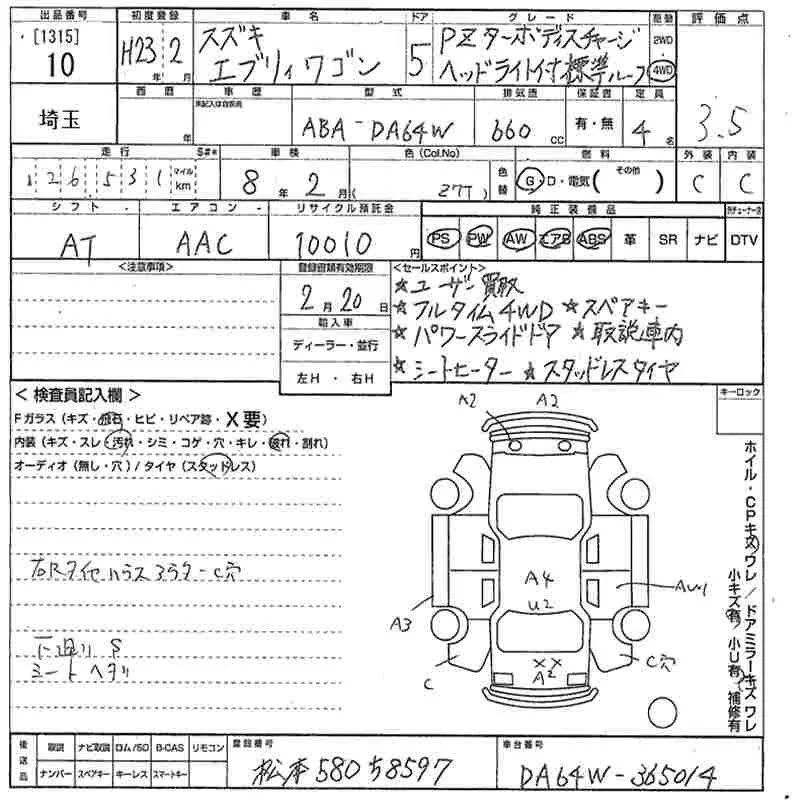 出品番号 初度登録 車名 ドア グレード 駆動 評価点
[1315]
10
H23年 2月
スズキ
エブリィワゴン
5
PZターボディスチャージ
ヘッドライト付標準ルーフ
2WD
4WD
3.5
埼玉
西暦 年
車歴
未記入は自家用
型式
ABA-DA64W
排気量
660 cc
保証書
有・無
定員
4名
走行 S#*
126531 マイル km
車検
8年 2月
色(Col.No)
Z7T
色替
燃料
G・D・電気( その他 )
外装 内装
C C
シフト
AT
エアコン
AAC
リサイクル預託金
10010円
純正装備品
PS PW AW エアB ABS 革 SR ナビ DTV
<注意事項>
登録書類有効期限
2月20日
輸入車
ディーラー・並行
左H・右H
<セールスポイント>
☆ユーザー買取
☆フルタイム4WD ☆スペアキー
☆パワースライドドア ☆取説車内
☆シートヒーター ☆スタッドレスタイヤ
<検査員記入欄>
Fガラス(キズ・飛石・ヒビ・リペア跡・X要)
内装(キズ・スレ・汚れ・シミ・コゲ・穴・キレ・破れ・割れ)
オーディオ(無し・穴)/タイヤ(スタッドレス)
下廻り S
シートヘタリ
キーロック
A2 A2
A4
U2
A3
C
XX
A2
C穴
ホイル・CPキズワレ/ドアミラーキズワレ
小キズ有 小U有 補修有
後送品
取説 ナビ取説 ロム/SD B-CAS リモコン
ナンバー スペアキー キーレス スマートキー
登録番号
松本580ち8597
車台番号
DA64W-365014